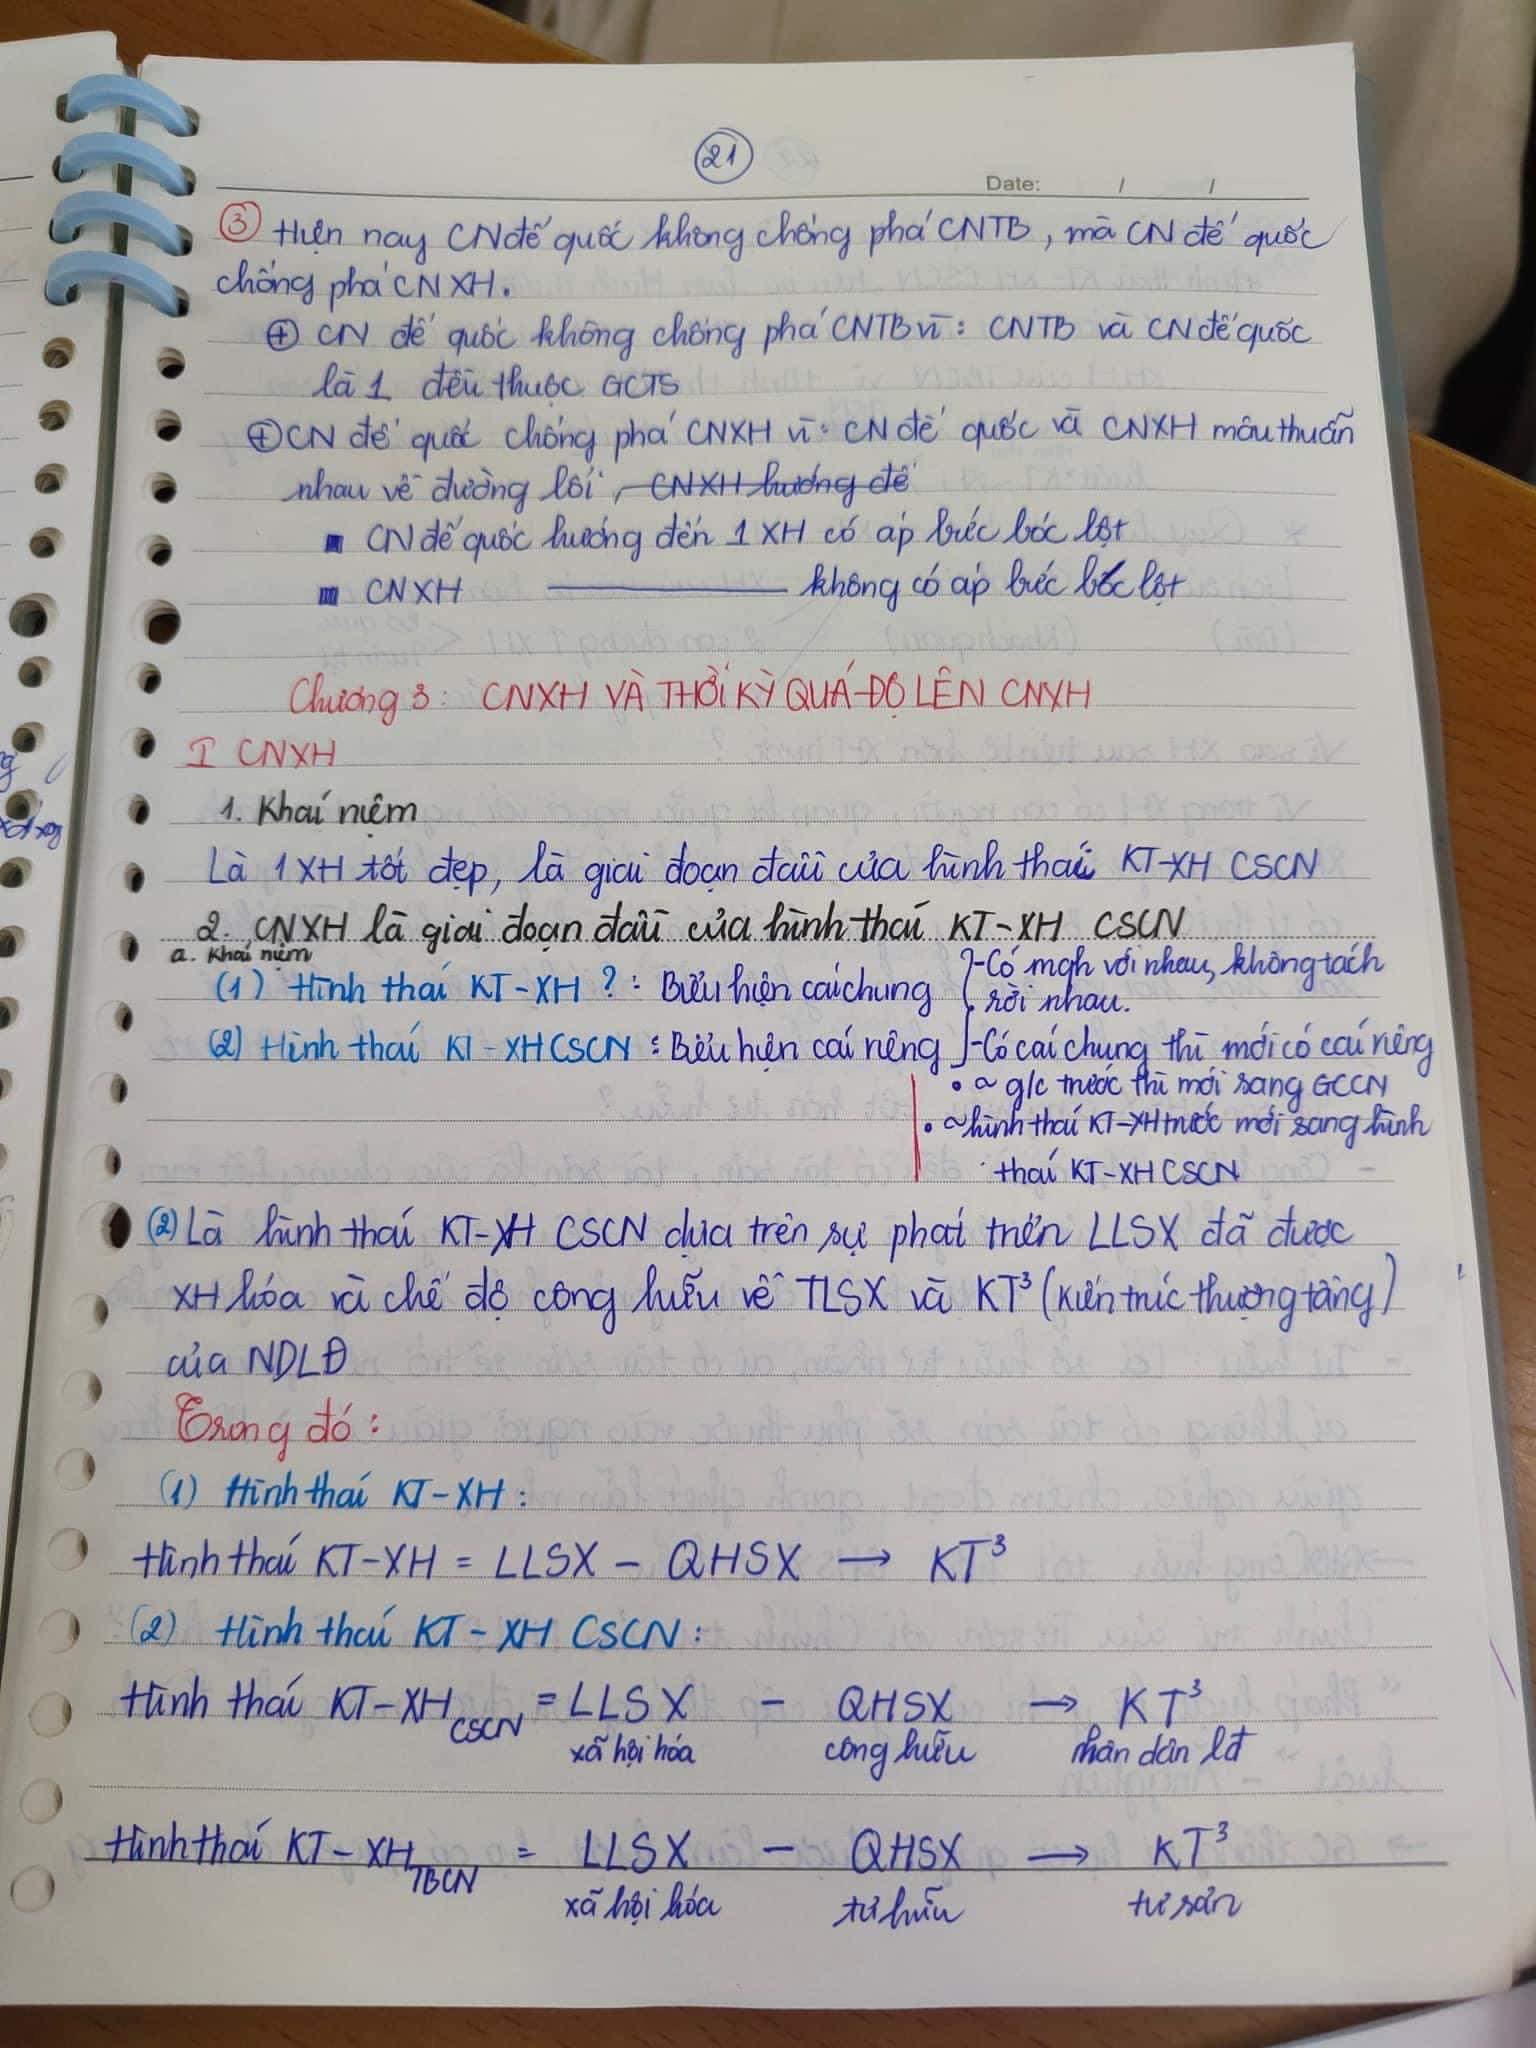 21
Date: / /
③ Hiện nay CN đế quốc không chống phá CNTB, mà CN đế quốc
chống phá CNXH.
⊕ CN đế quốc không chống phá CNTB vì: CNTB và CN đế quốc
là 1 đều thuộc GCTS
⊕ CN đế quốc chống phá CNXH vì: CN đế quốc và CNXH mâu thuẫn
nhau về đường lối, CNXH hướng đế
▪ CN đế quốc hướng đến 1 XH có áp bức bóc lột
▪ CNXH ——— không có áp bức bóc lột
Chương 3: CNXH VÀ THỜI KỲ QUÁ ĐỘ LÊN CNXH
I CNXH
1. Khái niệm
Là 1 XH tốt đẹp, là giai đoạn đầu của hình thái KT-XH CSCN
2. CNXH là giai đoạn đầu của hình thái KT-XH CSCN
a. Khái niệm
(1) Hình thái KT-XH ? : Biểu hiện cái chung
(2) Hình thái KT-XH CSCN : Biểu hiện cái riêng
- Có mqh với nhau, không tách
rời nhau.
- Có cái chung thì mới có cái riêng
• ~ g/c trước thì mới sang GCCN
• ~ hình thái KT-XH trước mới sang hình
thái KT-XH CSCN
(2) Là hình thái KT-XH CSCN dựa trên sự phát triển LLSX đã được
XH hóa và chế độ công hữu về TLSX và KT³ (kiến trúc thượng tầng)
của NDLĐ
Trong đó :
(1) Hình thái KT-XH :
Hình thái KT-XH = LLSX - QHSX → KT³
(2) Hình thái KT-XH CSCN :
Hình thái KT-XH CSCN = LLSX - QHSX → KT³
xã hội hóa công hữu nhân dân lđ
Hình thái KT-XH TBCN = LLSX - QHSX → KT³
xã hội hóa tư hữu tư sản